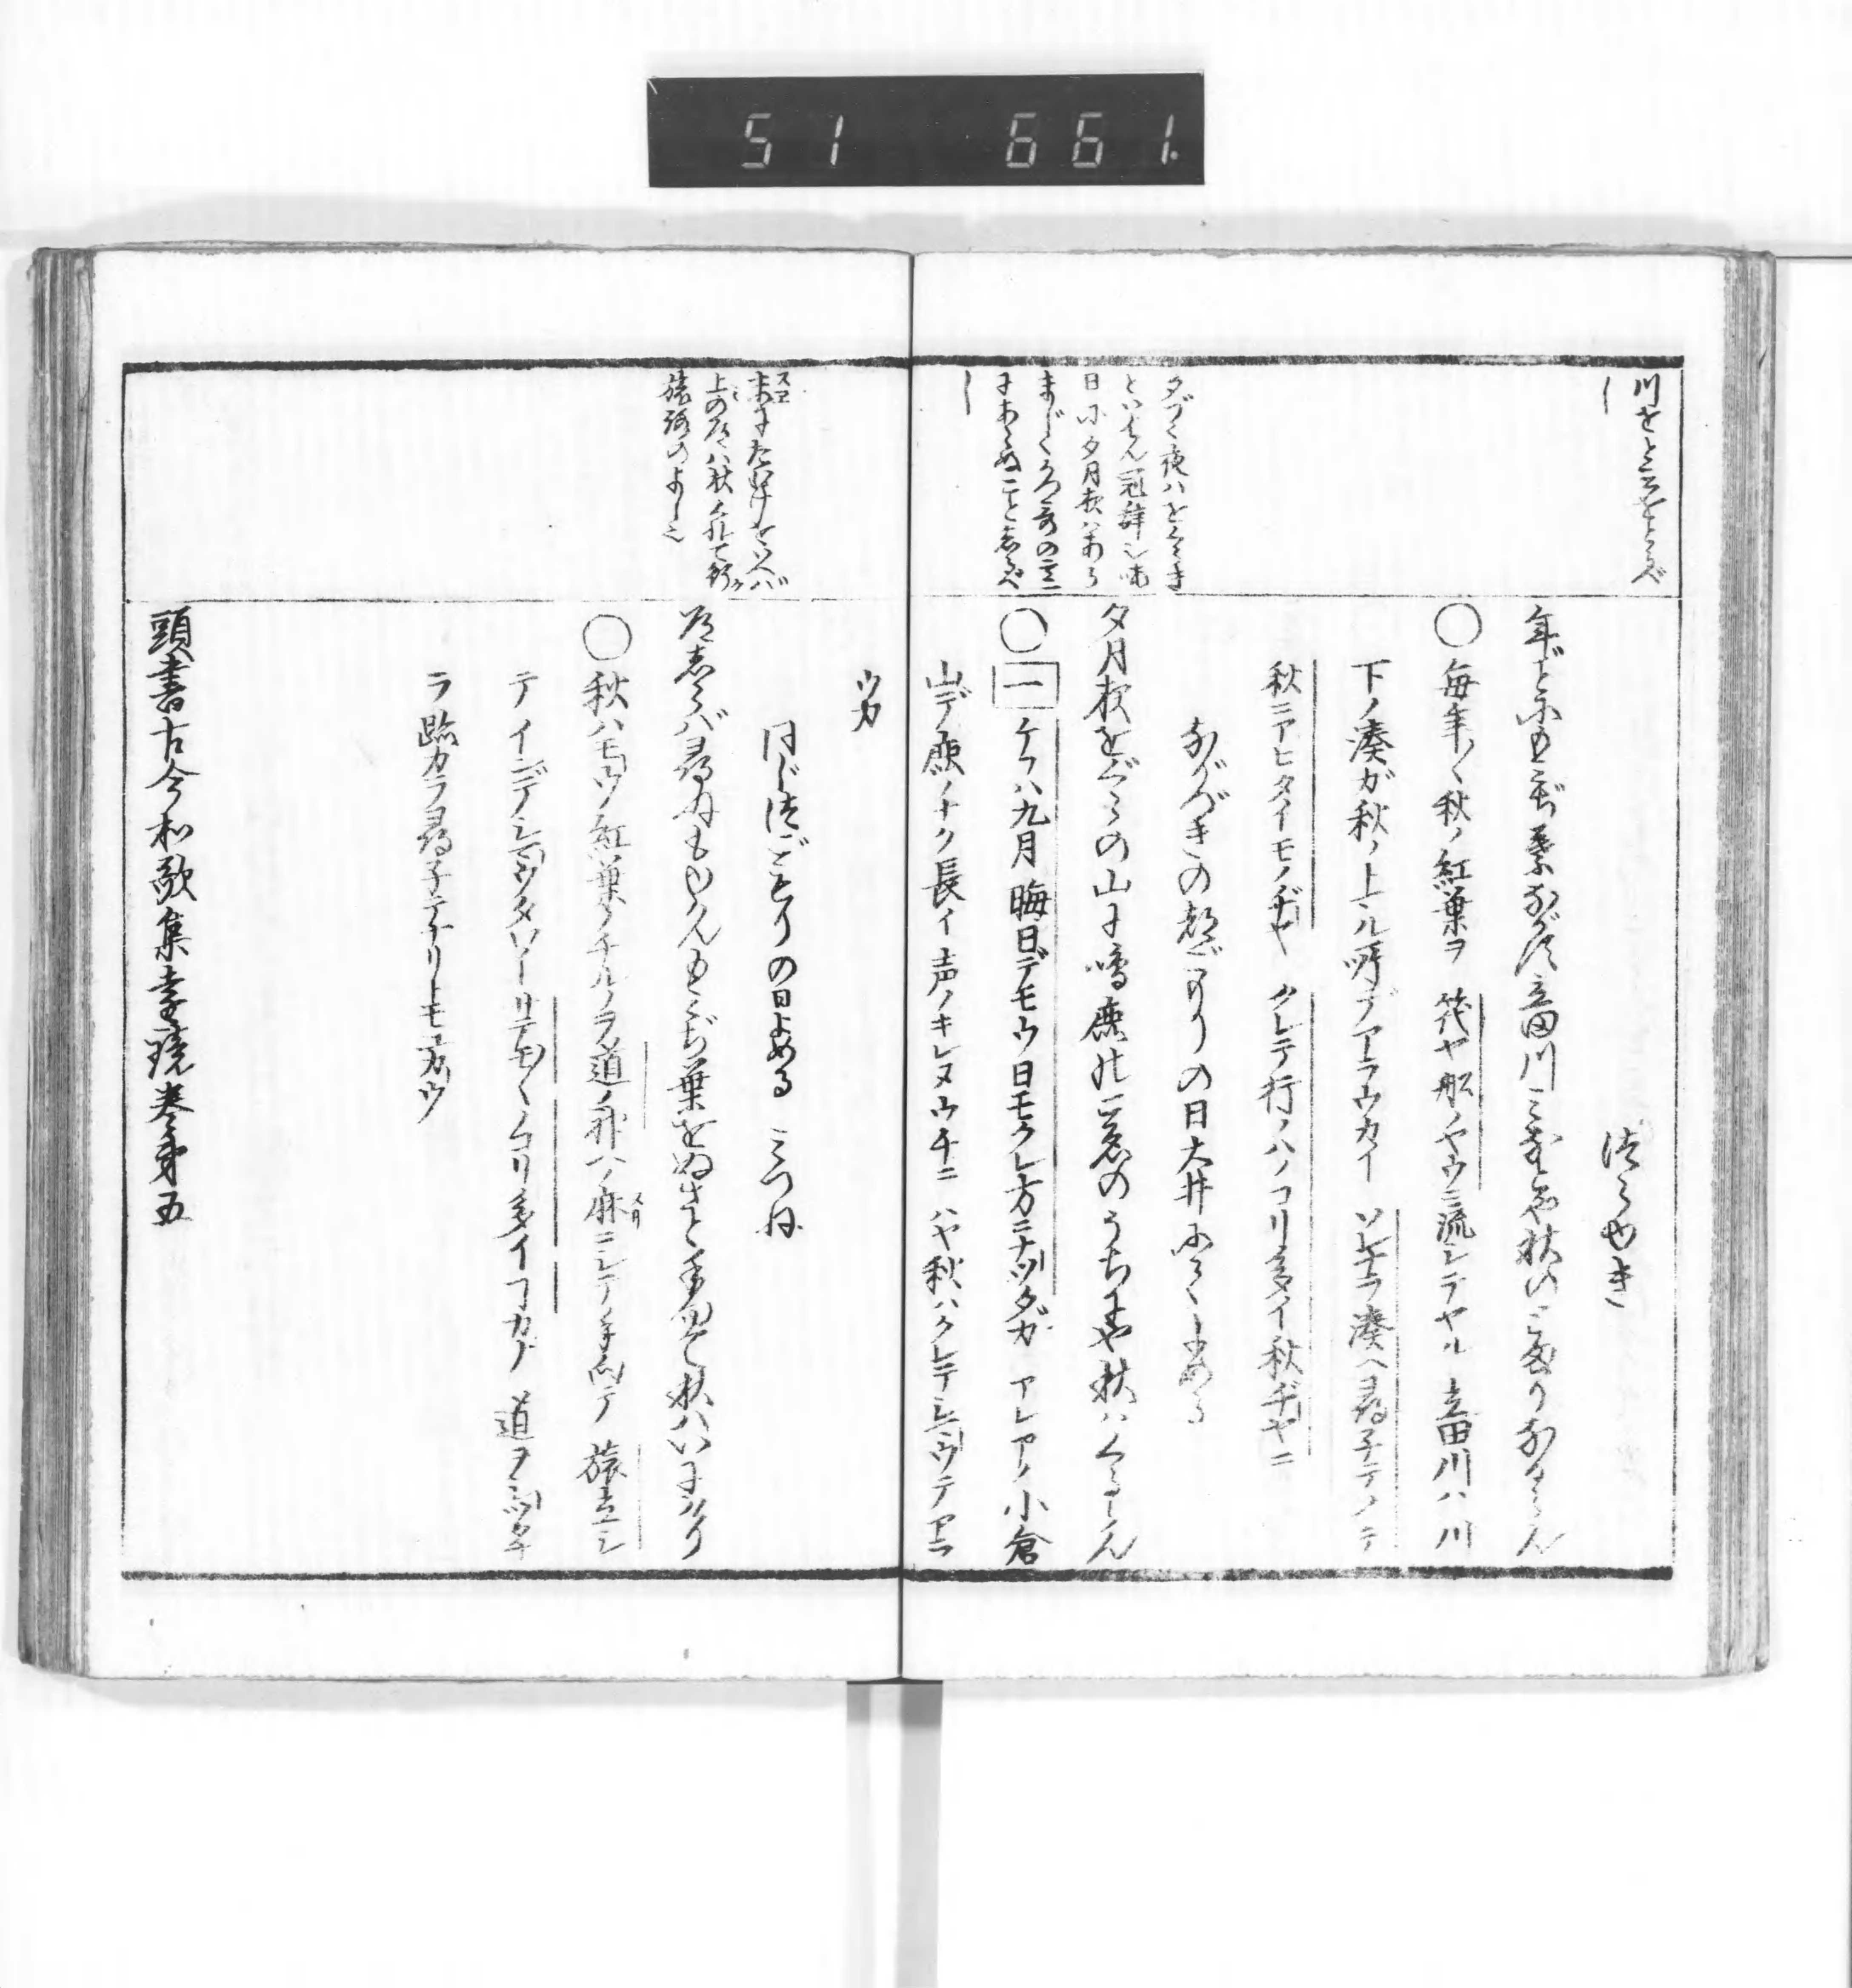 51 661.
川をと
し
つらゆき
年ごとにもみぢ葉ながす立田川みなとや秋のとまりなるらん
○毎年〳〵秋ノ紅葉ヲ筏ヤ船ノヤウニ流シテヤル立田川ハ川
下ノ湊ガ秋ノ上ル所デアラウカイソレナラ湊ヘ尋子テイテ
秋ニアヒタイモノヂヤクレテ行ノハノコリ多イ秋ヂヤニ
ながづきの都ごもりの日大井にてよめる
夕づく夜ハをぐら
といはん冠辞也晦
日に夕月夜ハあら
まじく
にあらぬことしるべ
し
夕月夜をぐらの山に鳴鹿のこゑのうちにや秋ハくるらん
○一ケフハ九月晦日デモウ日モクレ方ニナツタガアレアノ小倉
山デ鹿ノナク長イ声ノキレヌウチニハヤ秋ハクレテシマウテアラ
ウカ
同じつごもりの日よめる みつね
末にたむけをいへバ
上の道ハ秋のくれて行
旅路のよし也
道しらバ尋ねもゆかんもみぢ葉をぬさと手向て秋ハいにけり
○秋ハモウ紅葉ノチルノヲ道ノ神ヘノ麻ニシテ手向テ旅立シ
テインデシマウタワイサテモ〳〵ノコリ多イコカナ道ヲシツタ
ラ跡カラ尋子テナリトモユカウ
頭書古今和歌集遠鏡巻第五